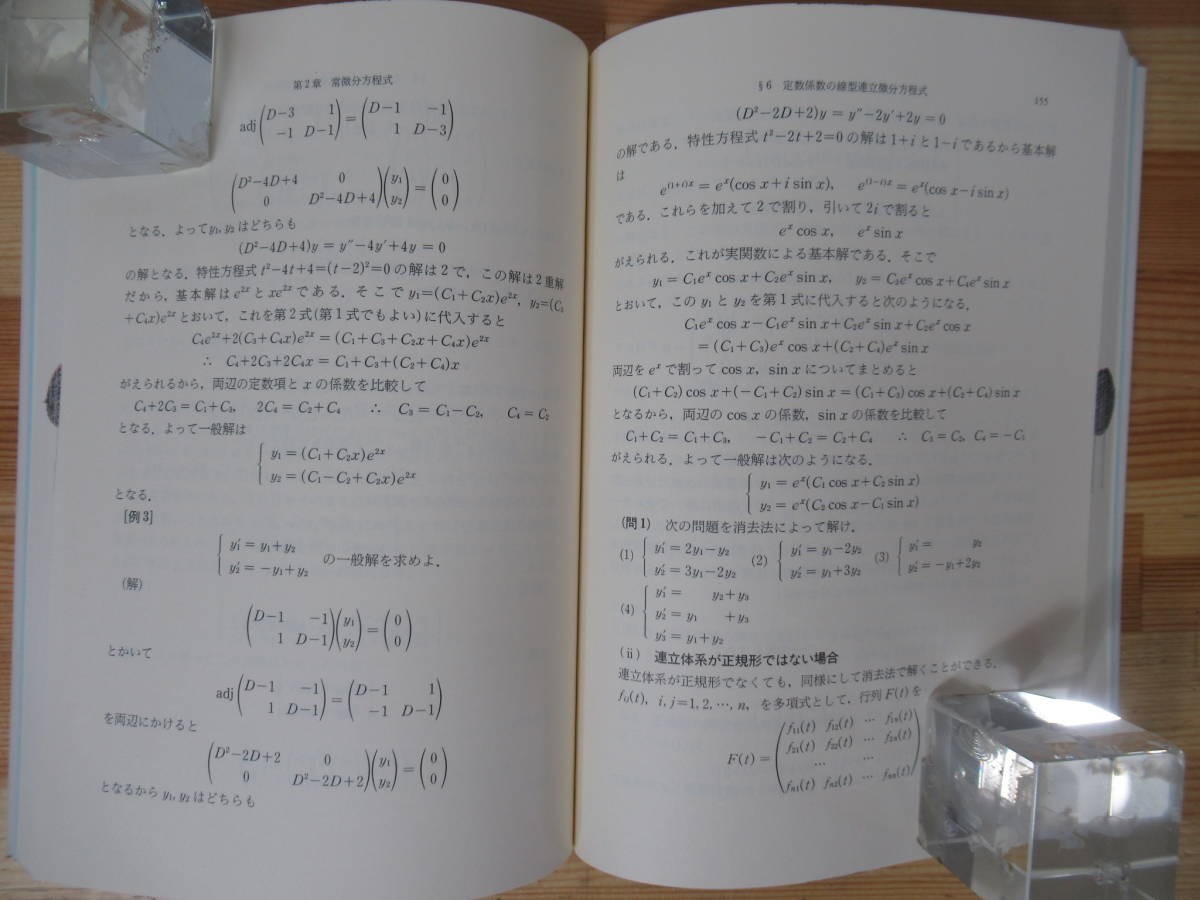 第2章 常微分方程式
adj(D−3 1
−1 D−1)=(D−1 −1
1 D−3)
(D²−4D+4 0
0 D²−4D+4)(y₁
y₂)=(0
0)
となる.よってy₁, y₂ はどちらも
(D²−4D+4)y = y″−4y′+4y = 0
の解となる.特性方程式 t²−4t+4=(t−2)²=0 の解は 2 で,この解は2重解
だから,基本解は e²ˣ と xe²ˣ である.そこで y₁=(C₁+C₂x)e²ˣ, y₂=(C₃
+C₄x)e²ˣ とおいて,これを第2式(第1式でもよい)に代入すると
C₄e²ˣ+2(C₃+C₄x)e²ˣ = (C₁+C₃+C₂x+C₄x)e²ˣ
∴ C₄+2C₃+2C₄x = C₁+C₃+(C₂+C₄)x
がえられるから,両辺の定数項と x の係数を比較して
C₄+2C₃ = C₁+C₃, 2C₄ = C₂+C₄ ∴ C₃ = C₁−C₂, C₄ = C₂
となる.よって一般解は
y₁ = (C₁+C₂x)e²ˣ
y₂ = (C₁−C₂+C₂x)e²ˣ
となる.
[例3]
y₁′ = y₁+y₂
y₂′ = −y₁+y₂ の一般解を求めよ.
(解)
(D−1 −1
1 D−1)(y₁
y₂)=(0
0)
とかいて
adj(D−1 −1
1 D−1)=(D−1 1
−1 D−1)
を両辺にかけると
(D²−2D+2 0
0 D²−2D+2)(y₁
y₂)=(0
0)
となるから y₁, y₂ はどちらも
§6 定数係数の線型連立微分方程式 155
(D²−2D+2)y = y″−2y′+2y = 0
の解である.特性方程式 t²−2t+2=0 の解は 1+i と 1−i であるから基本解
は
e⁽¹⁺ⁱ⁾ˣ = eˣ(cos x+i sin x), e⁽¹⁻ⁱ⁾ˣ = eˣ(cos x−i sin x)
である.これらを加えて 2 で割り,引いて 2i で割ると
eˣ cos x, eˣ sin x
がえられる.これが実関数による基本解である.そこで
y₁ = C₁eˣ cos x+C₂eˣ sin x, y₂ = C₃eˣ cos x+C₄eˣ sin x
とおいて,この y₁ と y₂ を第1式に代入すると次のようになる.
C₁eˣ cos x−C₁eˣ sin x+C₂eˣ sin x+C₂eˣ cos x
= (C₁+C₃)eˣ cos x+(C₂+C₄)eˣ sin x
両辺を eˣ で割って cos x, sin x についてまとめると
(C₁+C₂) cos x+(−C₁+C₂) sin x = (C₁+C₃) cos x+(C₂+C₄) sin x
となるから,両辺の cos x の係数, sin x の係数を比較して
C₁+C₂ = C₁+C₃, −C₁+C₂ = C₂+C₄ ∴ C₃ = C₂, C₄ = −C₁
がえられる.よって一般解は次のようになる.
y₁ = eˣ(C₁ cos x+C₂ sin x)
y₂ = eˣ(C₂ cos x−C₁ sin x)
(問1) 次の問題を消去法によって解け.
(1) y₁′ = 2y₁−y₂ (2) y₁′ = y₁−2y₂ (3) y₁′ = y₂
y₂′ = 3y₁−2y₂ y₂′ = y₁+3y₂ y₂′ = −y₁+2y₂
(4) y₁′ = y₂+y₃
y₂′ = y₁ +y₃
y₃′ = y₁+y₂
(ii) 連立体系が正規形ではない場合
連立体系が正規形でなくても,同様にして消去法で解くことができる.
fᵢⱼ(t), i, j=1, 2, …, n, を多項式として,行列 F(t) を
F(t) = (f₁₁(t) f₁₂(t) … f₁ₙ(t)
f₂₁(t) f₂₂(t) … f₂ₙ(t)
… …
fₙ₁(t) fₙ₂(t) … fₙₙ(t))